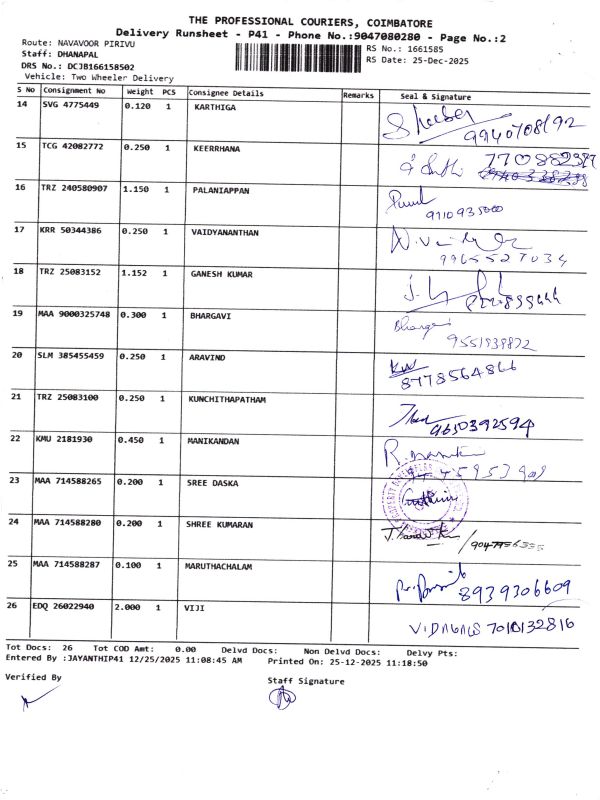 THE PROFESSIONAL COURIERS, COIMBATORE
Delivery Runsheet - P41 - Phone No.:9047080280 - Page No.:2
Route: NAVAVOOR PIRIVU
RS No.: 1661585
Staff: DHANAPAL
RS Date: 25-Dec-2025
DRS No.: DCJB166158502
Vehicle: Two Wheeler Delivery
S No Consignment No Weight PCS Consignee Details Remarks Seal & Signature
14 SVG 4775449 0.120 1 KARTHIGA
15 TCG 42082772 0.250 1 KEERRHANA
16 TRZ 240580907 1.150 1 PALANIAPPAN
17 KRR 50344386 0.250 1 VAIDYANANTHAN
9965527034
18 TRZ 25083152 1.152 1 GANESH KUMAR
19 MAA 9000325748 0.300 1 BHARGAVI
Bhargavi
9551938872
20 SLM 385455459 0.250 1 ARAVIND
8778564866
21 TRZ 25083100 0.250 1 KUNCHITHAPATHAM
9650392594
22 KMU 2181930 0.450 1 MANIKANDAN
23 MAA 714588265 0.200 1 SREE DASKA
24 MAA 714588280 0.200 1 SHREE KUMARAN
25 MAA 714588287 0.100 1 MARUTHACHALAM
8939306609
26 EDQ 26022940 2.000 1 VIJI
Tot Docs: 26 Tot COD Amt: 0.00 Delvd Docs: Non Delvd Docs: Delvy Pts:
Entered By :JAYANTHIP41 12/25/2025 11:08:45 AM Printed On: 25-12-2025 11:18:50
Verified By
Staff Signature